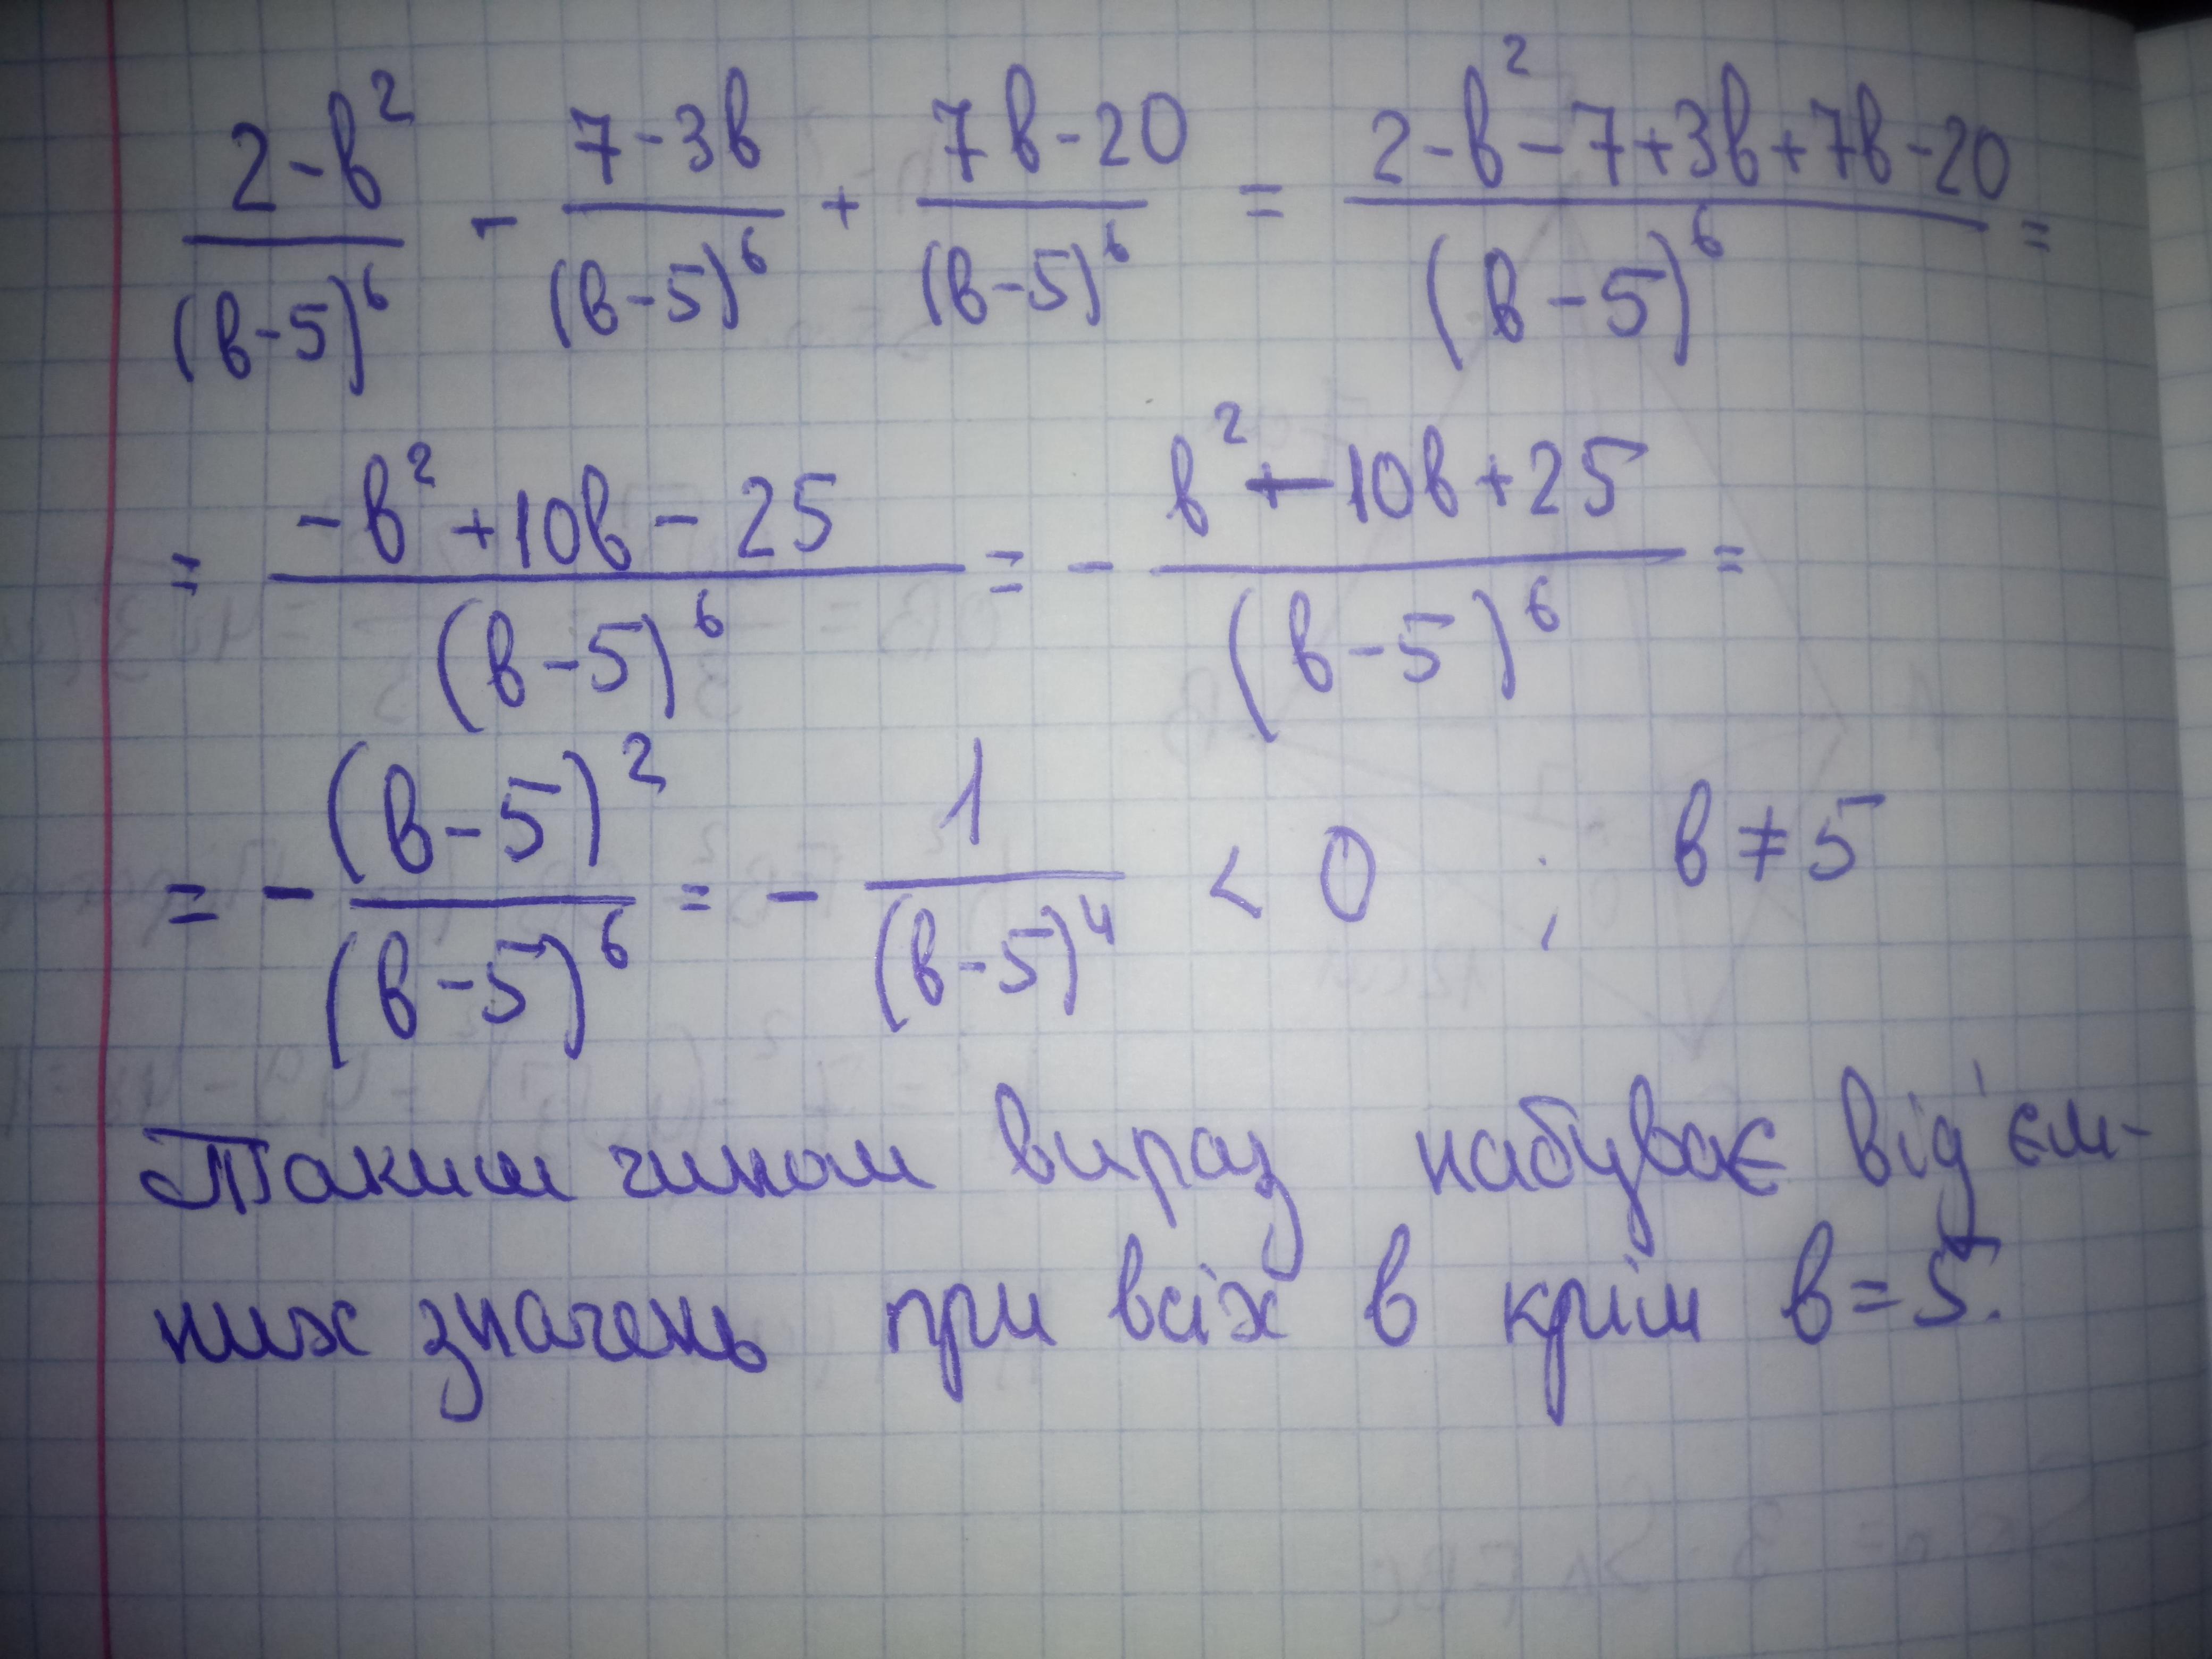 (2-в²)/(в-5)⁶ - (7-3в)/(в-5)⁶ + (7в-20)/(в-5)⁶ = (2-в²-7+3в+7в-20)/(в-5)⁶ =
= (-в²+10в-25)/(в-5)⁶ = - (в²-10в+25)/(в-5)⁶ =
= - (в-5)²/(в-5)⁶ = - 1/(в-5)⁴ < 0 ; в ≠ 5
Таким чином вираз набуває від'єм-
них значень при всіх в крім в=5.